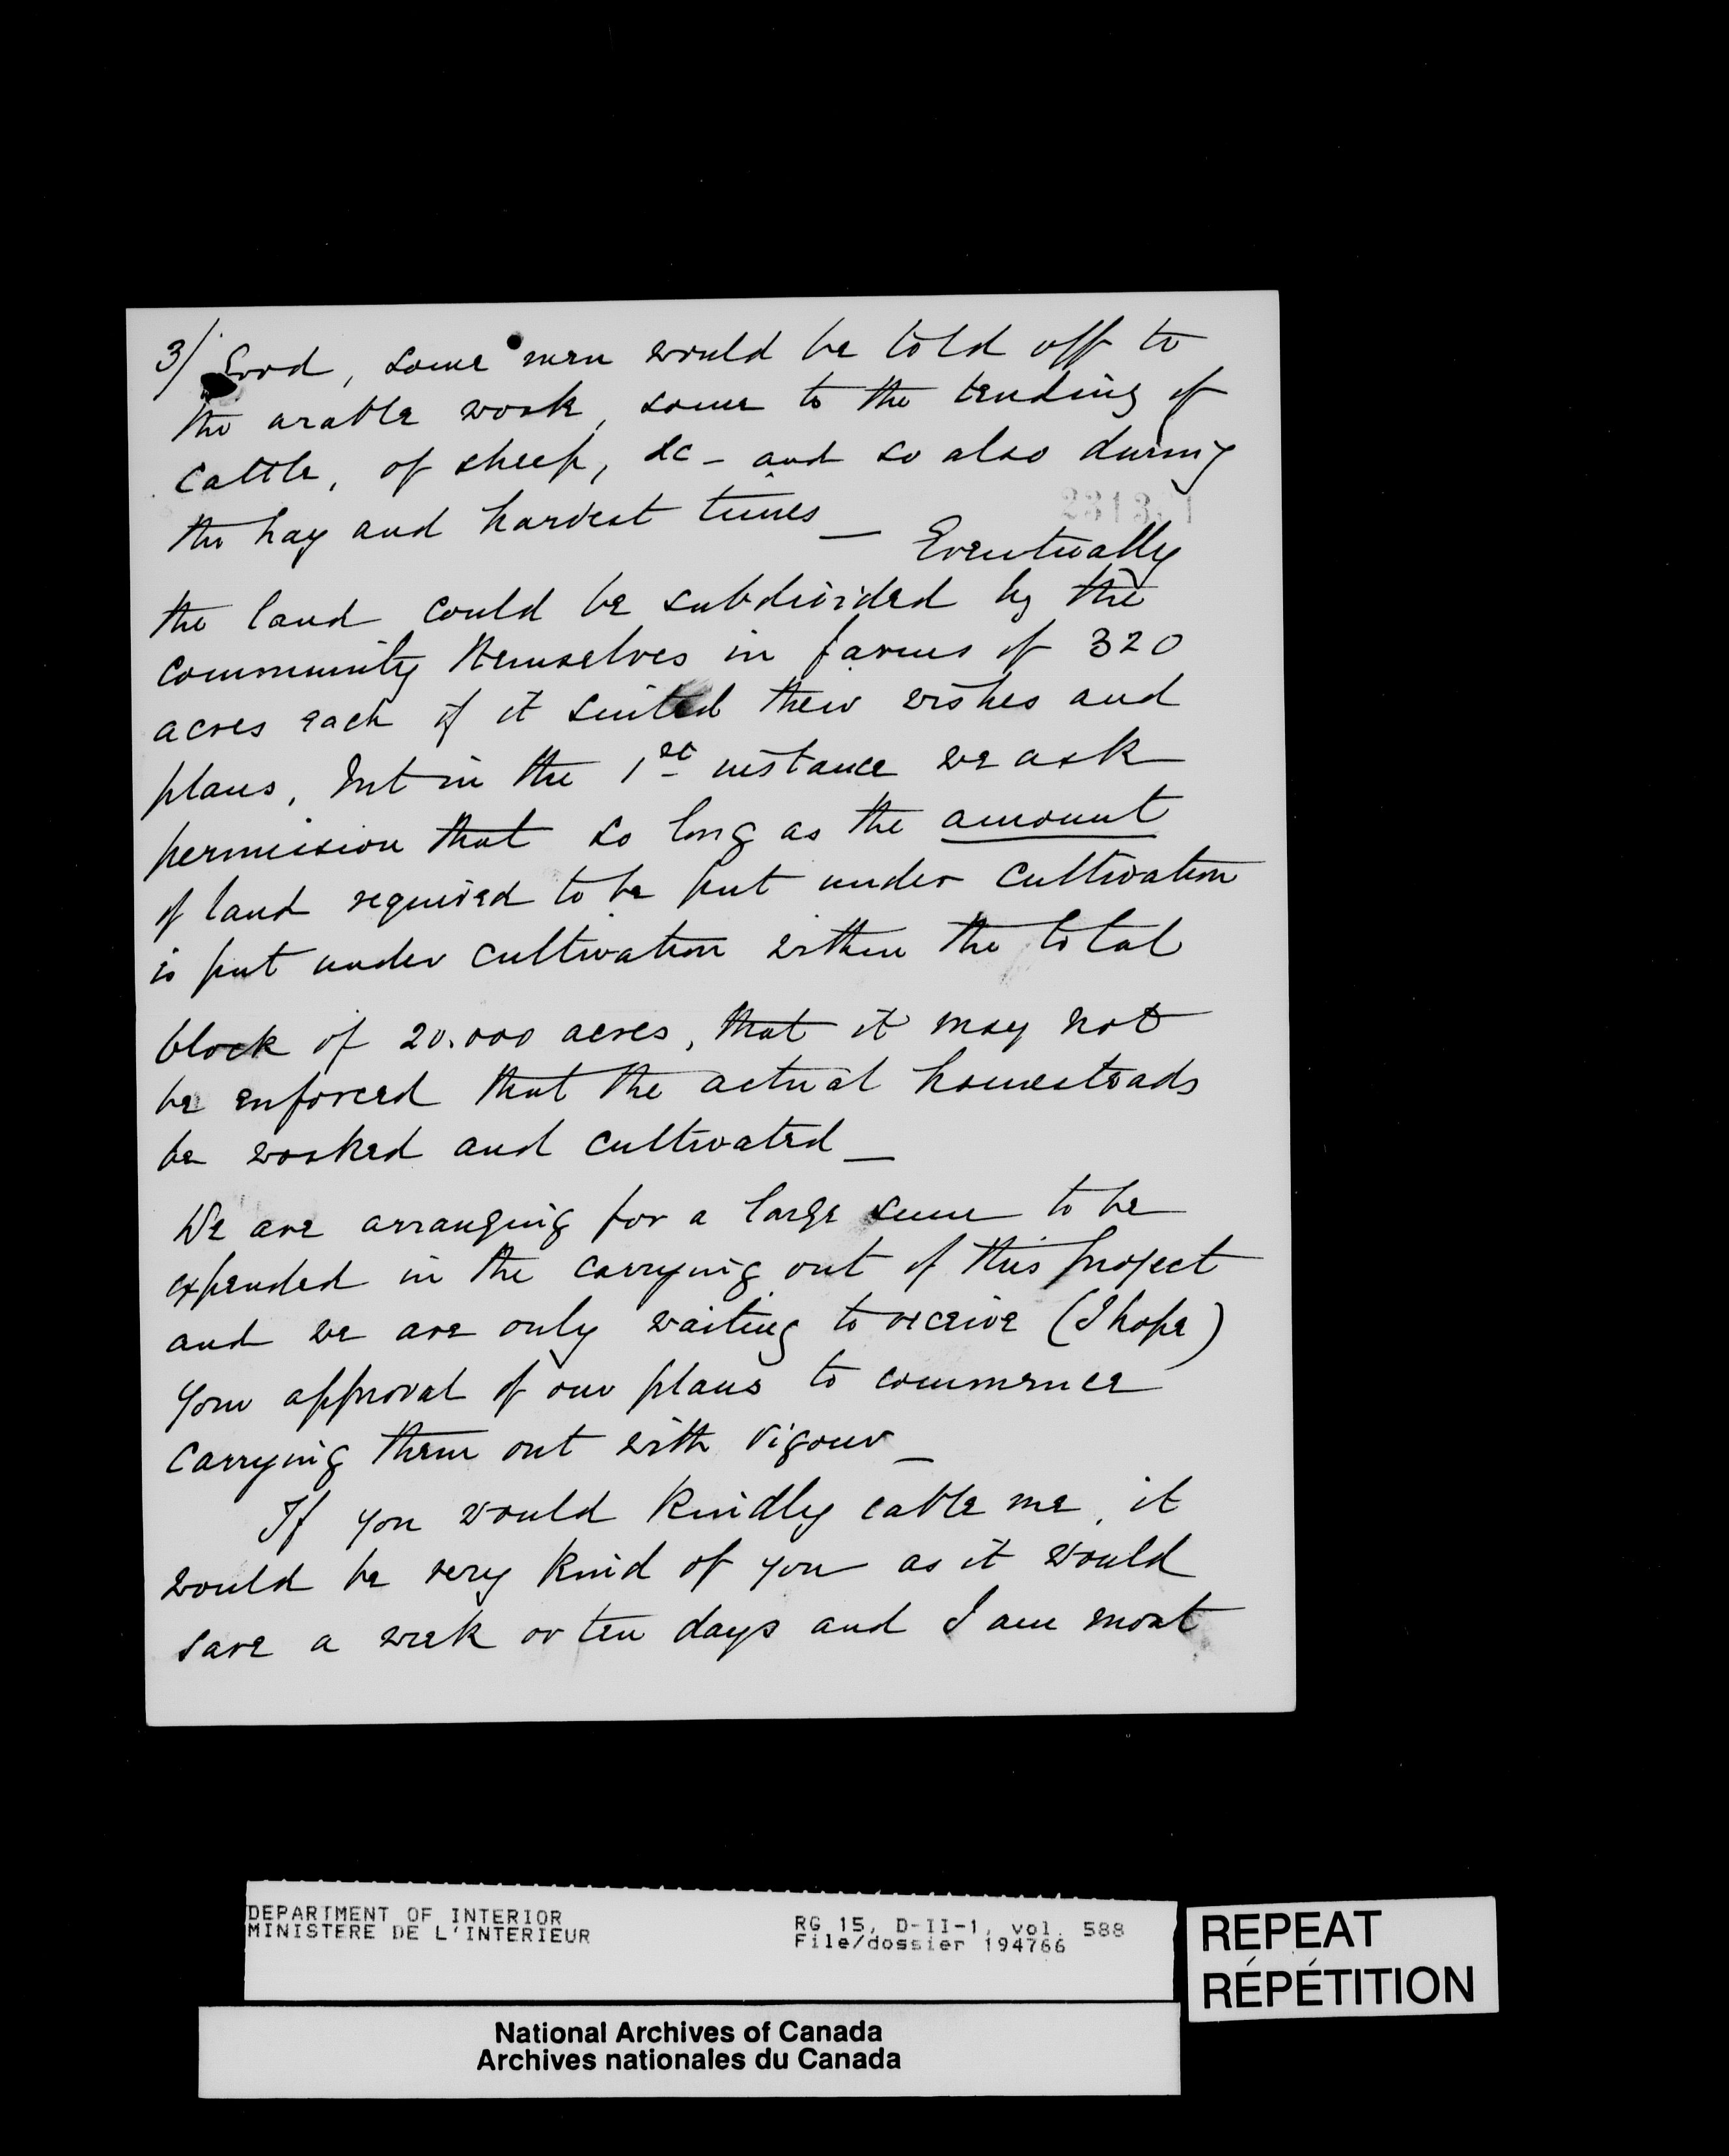 3/ Good, some men would be told off to
the arable work, some to the tending of
cattle, of sheep, &c - and so also during
the hay and harvest times _ Eventually
the land could be subdivided by the
community themselves in farms of 320
acres each if it suited their wishes and
plans, but in the 1st instance we ask
permission that so long as the amount
of land required to be put under cultivation
is put under cultivation within the total
block of 20.000 acres, that it may not
be enforced that the actual homesteads
be worked and cultivated _
We are arranging for a large sum to be
expended in the carrying out of this project
and we are only waiting to receive (I hope)
your approval of our plans to commence
carrying them out with vigour _
If you would kindly cable me, it
would be very kind of you as it would
save a week or ten days and I am most
DEPARTMENT OF INTERIOR
MINISTERE DE L'INTERIEUR
RG 15, D-II-1, vol. 588
File/dossier 194766
REPEAT
RÉPÉTITION
National Archives of Canada
Archives nationales du Canada